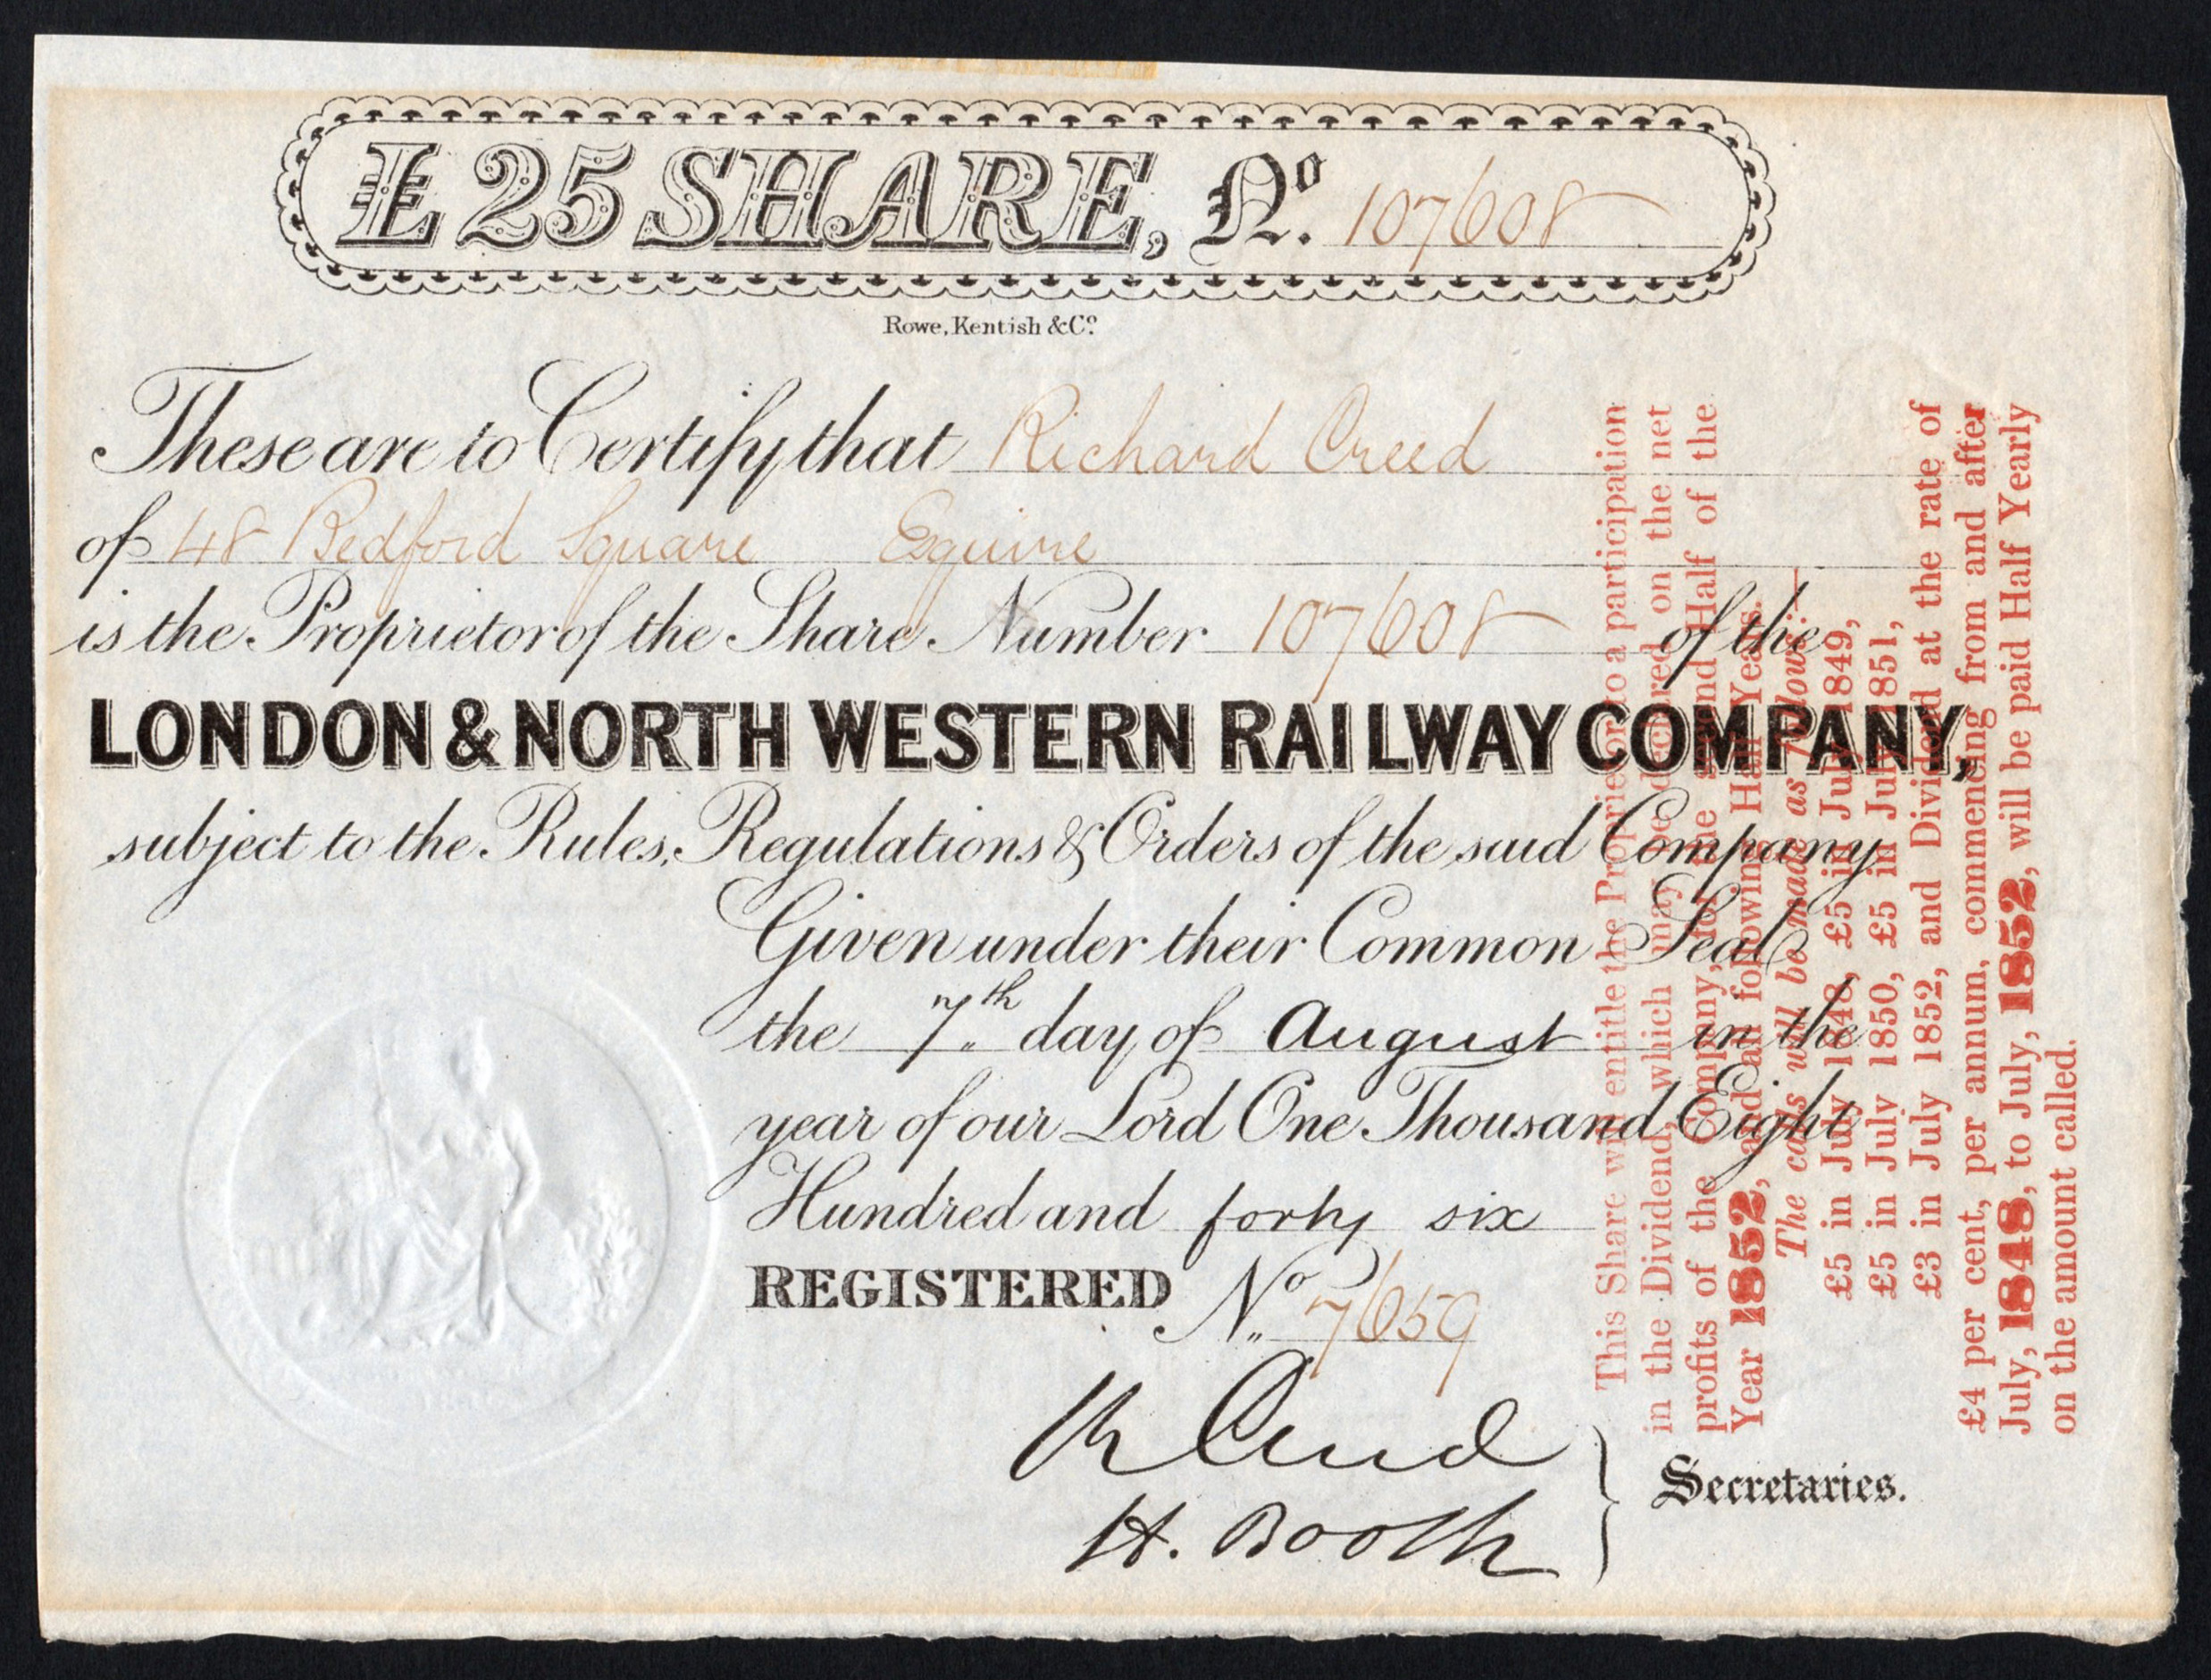 £25 SHARE, No. 107608
Rowe, Kentish & Co.
These are to Certify that Richard Creed
of 48 Bedford Square Esquire
is the Proprietor of the Share Number 107608 of the
LONDON & NORTH WESTERN RAILWAY COMPANY,
subject to the Rules, Regulations & Orders of the said Company
Given under their Common Seal
the 7th day of August in the
year of our Lord One Thousand Eight
Hundred and forty six
REGISTERED No. 7659
R Creed
H. Booth
Secretaries.
This Share will entitle the Proprietor to a participation
in the Dividend, which may be declared on the net
profits of the Company, for the second Half of the
Year 1852, and all following Half Years.
The calls will be made as follows:—
£5 in July 1848, £5 in July 1849,
£5 in July 1850, £5 in July 1851,
£3 in July 1852, and Dividend at the rate of
£4 per cent, per annum, commencing from and after
July, 1848, to July, 1852, will be paid Half Yearly
on the amount called.